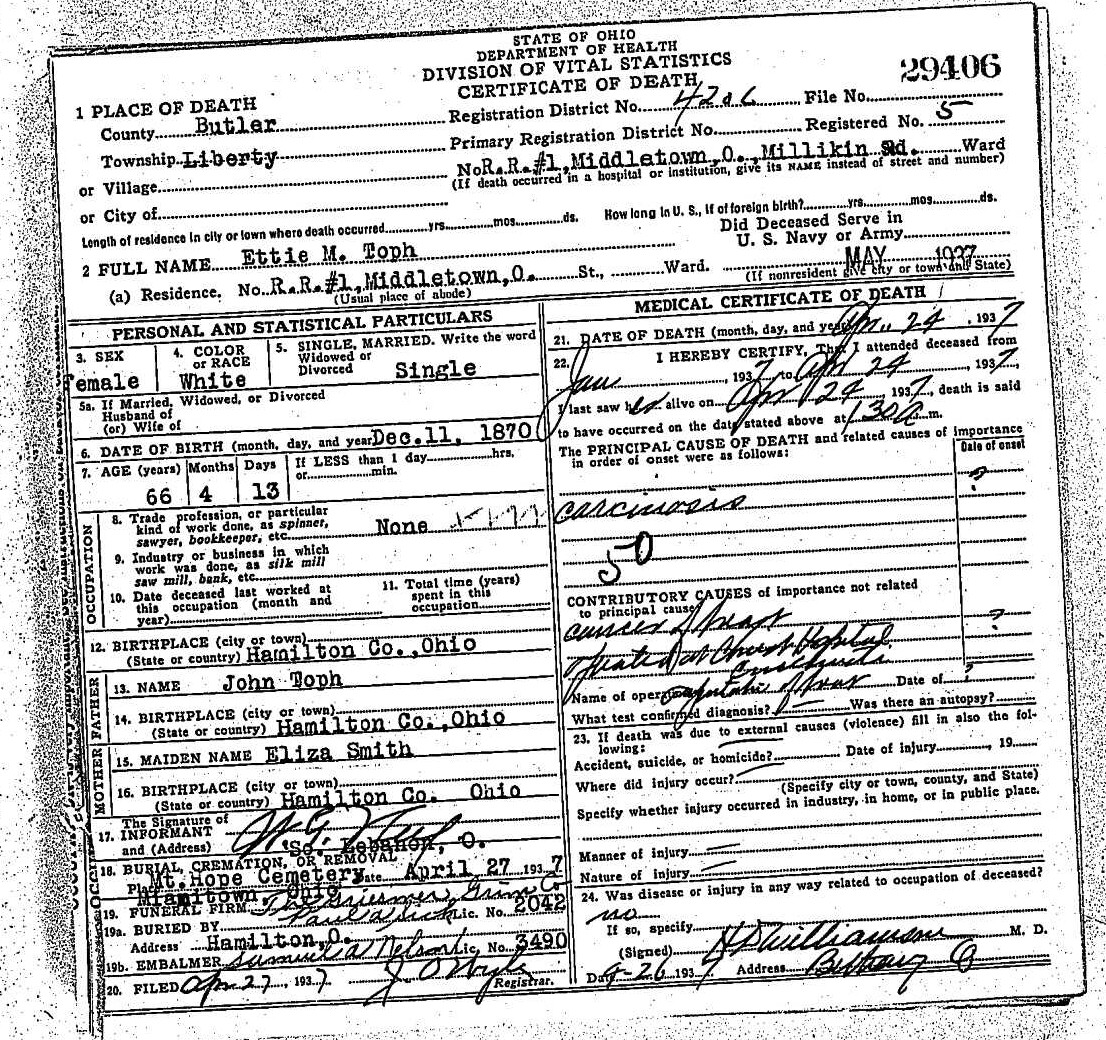 STATE OF OHIO
DEPARTMENT OF HEALTH
DIVISION OF VITAL STATISTICS
CERTIFICATE OF DEATH
29406
1 PLACE OF DEATH
County Butler
Registration District No. File No.
Township Liberty
Primary Registration District No. Registered No. 5
or Village
No R.R.#1, Middletown, O., Millikin Rd. Ward
(If death occurred in a hospital or institution, give its NAME instead of street and number)
or City of
Length of residence in city or town where death occurred yrs. mos. ds. How long in U. S., if of foreign birth? yrs. mos. ds.
2 FULL NAME Ettie M. Toph
Did Deceased Serve in
U. S. Navy or Army
MAY 1937
(a) Residence. No. R.R.#1, Middletown, O. St., Ward.
(Usual place of abode)
(If nonresident give city or town and State)
PERSONAL AND STATISTICAL PARTICULARS
3. SEX
Female
4. COLOR
or RACE
White
5. SINGLE, MARRIED. Write the word
Widowed or
Divorced Single
5a. If Married, Widowed, or Divorced
Husband of
(or) Wife of
6. DATE OF BIRTH (month, day, and year Dec. 11, 1870
7. AGE (years) Months Days If LESS than 1 day hrs.
or min.
66 4 13
OCCUPATION
8. Trade profession, or particular
kind of work done, as spinner,
sawyer, bookkeeper, etc. None
9. Industry or business in which
work was done, as silk mill
saw mill, bank, etc.
10. Date deceased last worked at
this occupation (month and
year)
11. Total time (years)
spent in this
occupation
12. BIRTHPLACE (city or town)
(State or country) Hamilton Co., Ohio
FATHER
13. NAME John Toph
14. BIRTHPLACE (city or town)
(State or country) Hamilton Co., Ohio
MOTHER
15. MAIDEN NAME Eliza Smith
16. BIRTHPLACE (city or town)
(State or country) Hamilton Co. Ohio
The Signature of
17. INFORMANT W G
and (Address) So. Lebanon, O.
18. BURIAL, CREMATION, OR REMOVAL
Place Mt. Hope Cemetery Date April 27 1937
Miamitown, Ohio
19. FUNERAL FIRM The Co
19a. BURIED BY Paul A Lic. No. 2042
Address Hamilton, O.
19b. EMBALMER Samuel A Nelson Lic. No. 3490
20. FILED Apr 27, 1937 J O Registrar.
MEDICAL CERTIFICATE OF DEATH
21. DATE OF DEATH (month, day, and year Apr. 24, 1937
22. I HEREBY CERTIFY, That I attended deceased from
Jan, 1937 to Apr 24, 1937,
I last saw her alive on Apr 24, 1937, death is said
to have occurred on the date stated above at 1.30 a m.
The PRINCIPAL CAUSE OF DEATH and related causes of importance
in order of onset were as follows:
Date of onset
?
carcinosis
50
CONTRIBUTORY CAUSES of importance not related
to principal cause
cancer of breast ?
operated at Christ Hospital
Name of operation of breast Date of ?
What test confirmed diagnosis? Was there an autopsy?
23. If death was due to external causes (violence) fill in also the following:
Accident, suicide, or homicide? Date of injury , 19
Where did injury occur?
(Specify city or town, county, and State)
Specify whether injury occurred in industry, in home, or in public place.
Manner of injury
Nature of injury
24. Was disease or injury in any way related to occupation of deceased?
no
If so, specify
(Signed) H P Williamson M. D.
Date 4-26 1937 Address Bethany O